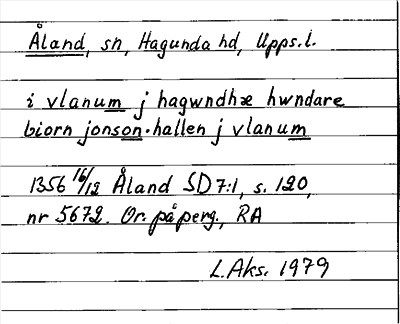 Åland, sn, Hagunda hd, Upps.l.
i vlanum j hagwndhæ hwndare
biorn jonson.hallen j vlanum
1356 16/12 Åland SD 7:1, s. 120,
nr 5672. Or. på perg., RA
L.Aks. 1979